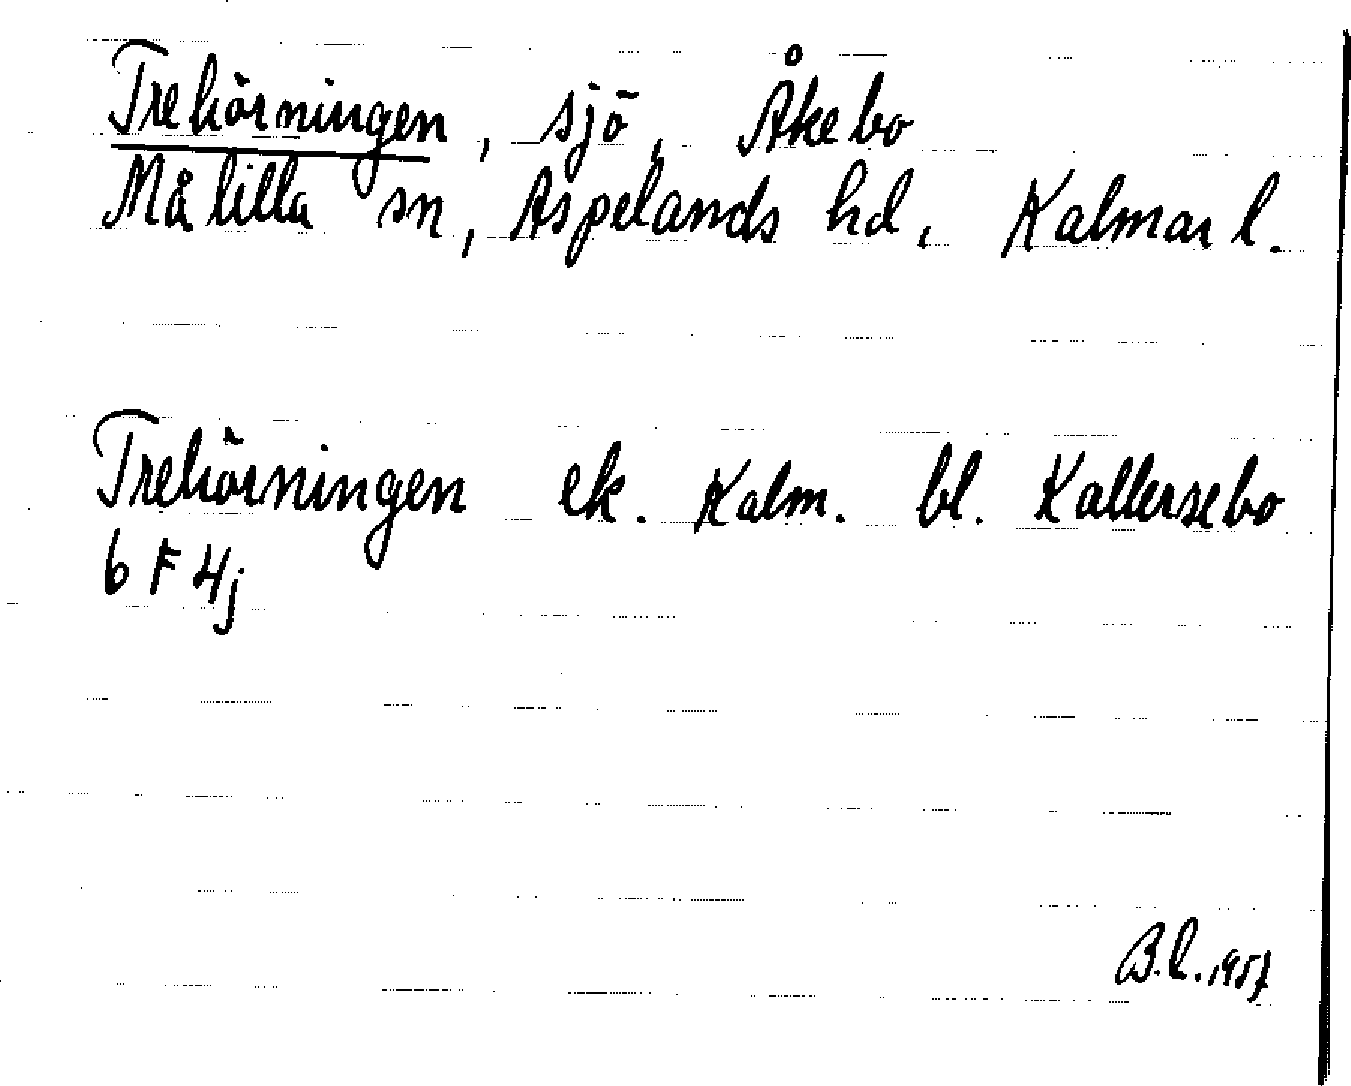 Trehörningen, sjö, Åkebo
Målilla sn, Aspelands hd, Kalmar l.
Trehörningen ek. Kalm. bl. Kallersebo
6 F 4j
B.L. 1957